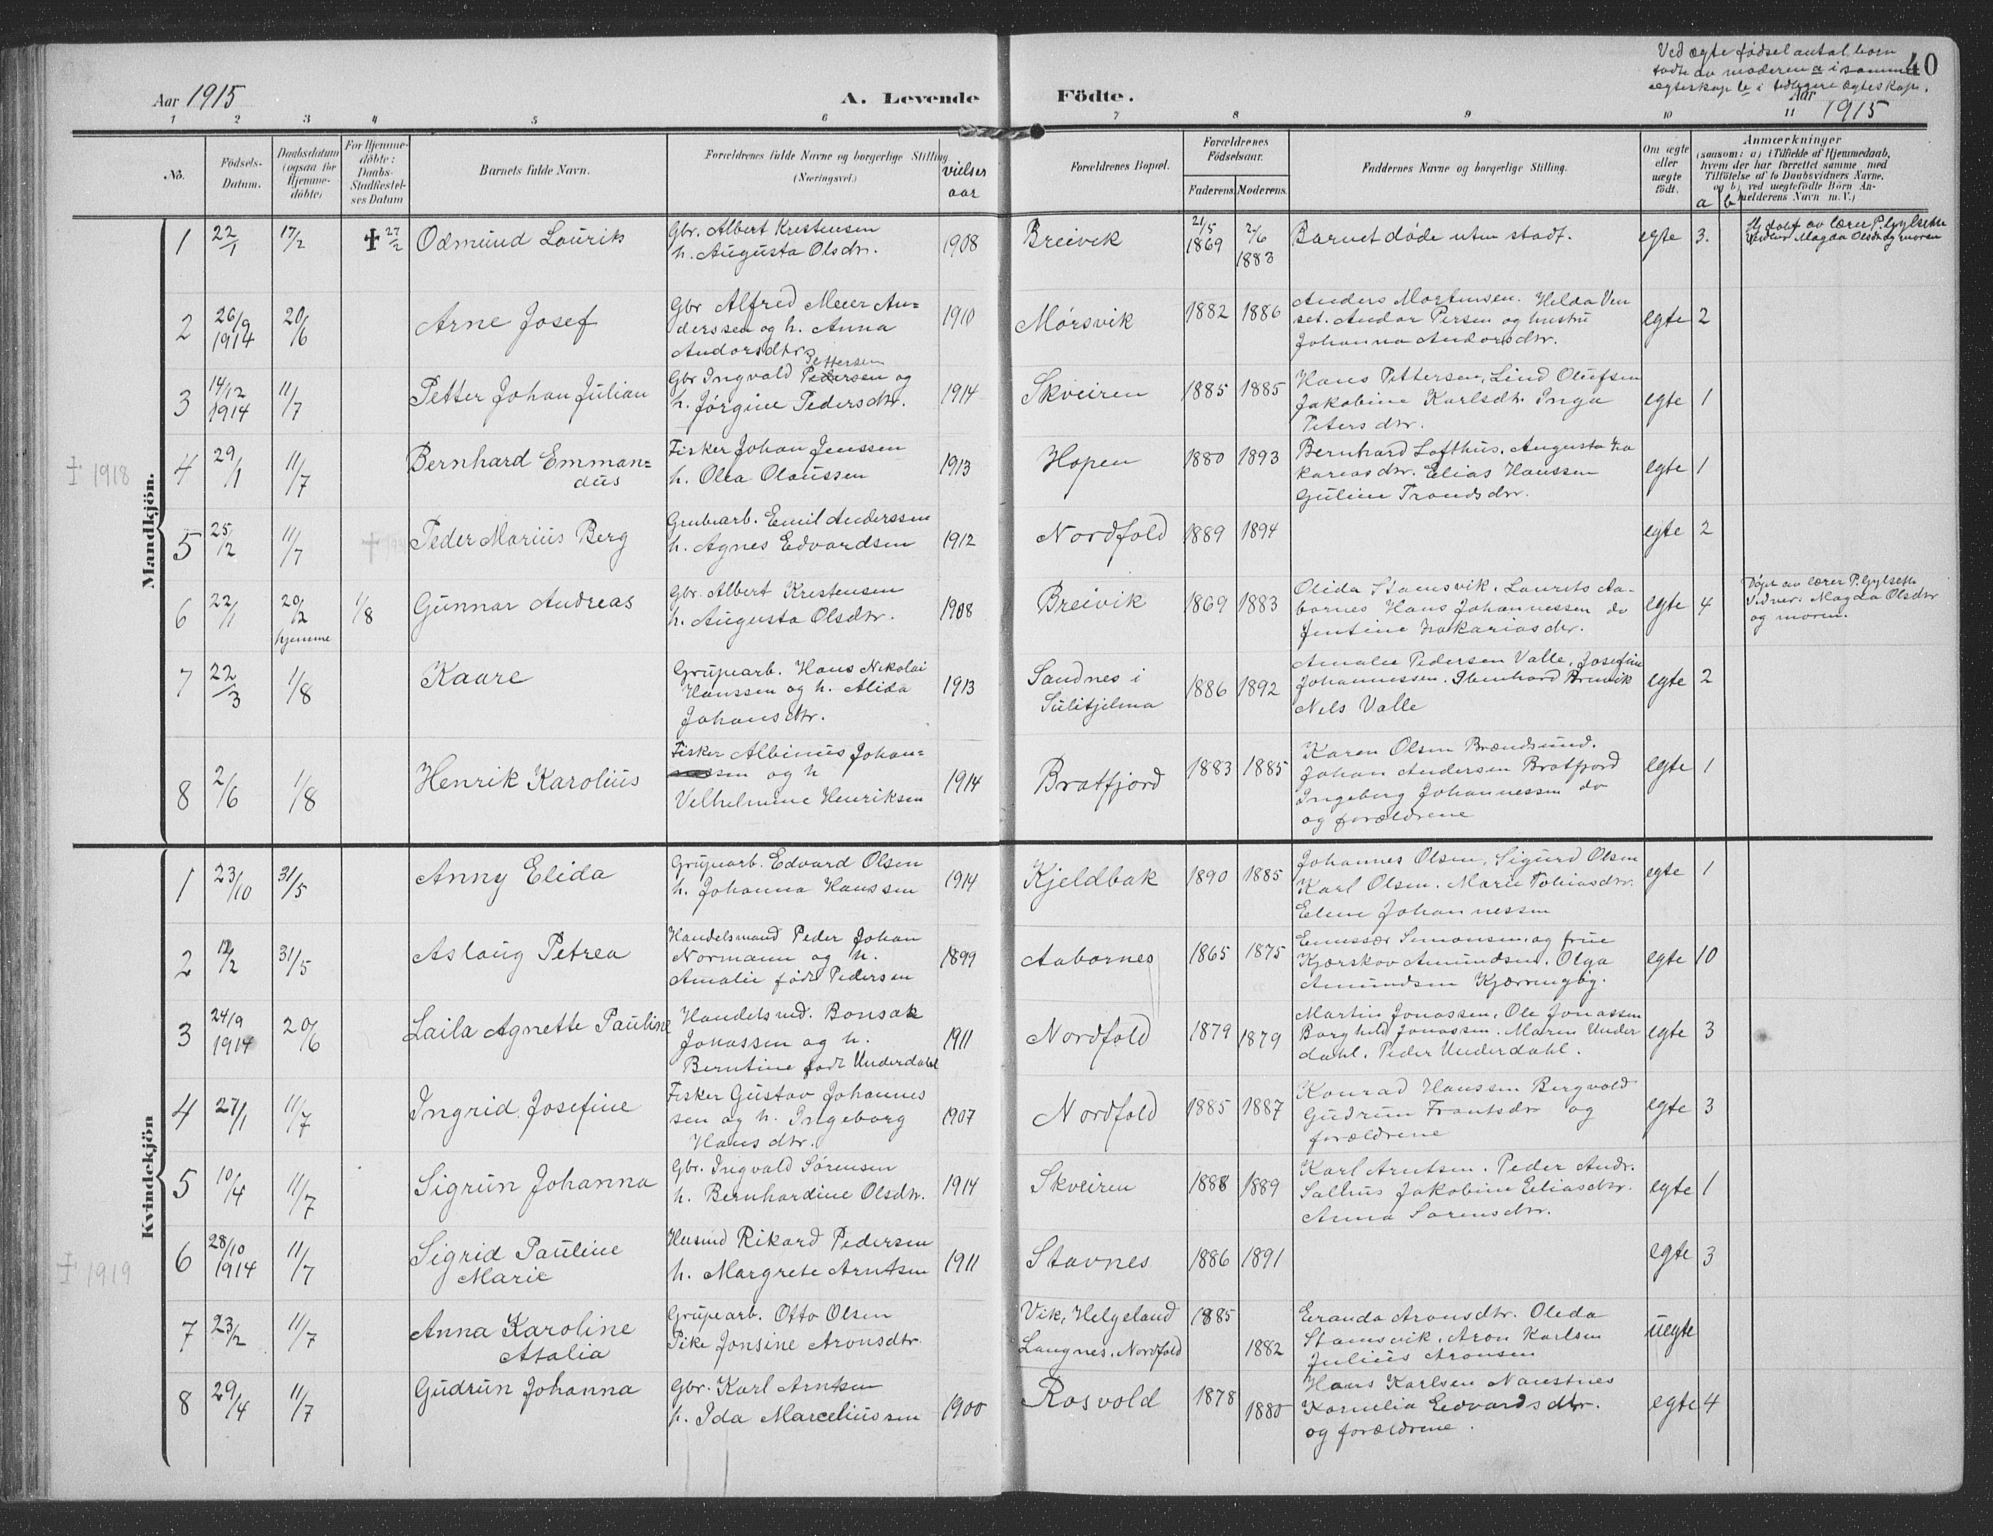 Ved ægte fødsel antal born
födte av moderen a i samme
ægteskap b i tidligere ægteskap.
40
Aar 1915
A. Levende Födte.
Aar 1915
1 2 3 4 5 6 7 8 9 10 11
No.
Födsels-Datum.
Daabsdatum (ogsaa for Hjemmedöbte)
For Hjemmedöbte: Daabs-Stadfæstelses Datum
Barnets fulde Navn.
Forældrenes fulde Navne og borgerlige Stilling (Næringsvei.)
vielses aar
Forældrenes Bopæl.
Forældrenes Födselsaar.
Faderens. Moderens.
Faddernes Navne og borgerlige Stilling.
Om ægte eller uægte födt.
Anmærkninger
(saasom: a) i Tilfælde af Hjemmedaab,
hvem der har forrettet samme, med
Tilföielse af to Daabsvidners Navne,
og b) ved uægtefödte Börn An-
melderens Navn m. V.)
a b
Mandkjön.
1 22/1 17/2 ✝ 27/2 Odmund Laurik Gbr. Albert Kristensen 1908 Breivik 21/5 1869 2/6 1883 Barnet døde uten stadf. egte 3. Hj. døbt av lærer P. Gylseth
h. Augusta Olsdtr. Vidner Magda Olsdtr og moren
2 26/9 1914 20/6 Arne Josef Gbr Alfred Meier An- 1910 Mørsvik 1882 1886 Anders Mortensen. Hilda Ven- egte 2
derssen og h. Anna set. Andor Persen og hustru
Andorsdtr. Johanna Andorsdtr.
3 14/12 1914 11/7 Petter Johan Julian Gbr Ingvald Pedersen Pettersen og 1914 Skveiren 1885 1885 Hans Pettersen, Lind Olufsen egte 1
h. Jørgine Pedersdtr. Jakobine Karlsdtr. Inga
Petersdtr.
✝ 1918
4 29/1 11/7 Bernhard Emman- Fisker Johan Jenssen 1913 Hopen 1880 1893 Bernhard Lofthus. Augusta Za- egte 1
dus h. Olea Olaussen kariasdtr. Elias Hanssen
Guline Trondsdtr.
5 25/2 11/7 Peder Marius Berg Grubearb. Emil Anderssen 1912 Nordfold 1889 1894 egte 2
h. Agnes Edvardsen
6 22/1 20/2 hjemme 1/8 Gunnar Andreas Gbr. Albert Kristensen 1908 Breivik 1869 1883 Olida Stamsvik. Laurits Aa- egte 4 Døpt av lærer P. Gylseth
h. Augusta Olsdtr. bornes Hans Johannessen do Vidner. Magda Olsdtr
Jentine Zakariasdtr. og moren.
7 22/3 1/8 Kaare Grupearb. Hans Nikolai 1913 Sandnes i 1886 1892 Amalie Pedersen Valle, Josefine egte 2
Hanssen og h. Alida Sulitjelma Johannessen. Bernhard Breivik
Johansdtr. Nils Valle
8 2/6 1/8 Henrik Karolius Fisker Albinus Johan- 1914 Bratfjord 1883 1885 Karen Olsen Brændsund. egte 1
sen og h Johan Andersen Bratfjord
Velhelmine Henriksen Ingeborg Johannessen do
og forældrene
Kvindekjön
1 23/10 31/5 Anny Elida Grupearb. Edvard Olsen 1914 Kjeldbak 1890 1885 Johannes Olsen, Sigurd Olsen egte 1
h. Johanna Hanssen Karl Olsen. Marie Tobiasdtr.
Eline Johannessen
2 12/2 31/5 Aslaug Petrea Handelsmand Peder Johan 1899 Aabornes 1865 1875 Emissær Simonsen og frue egte 10
Normann og h. Kjærskov Amundsen. Olga
Amalie født Pedersen Amundsen Kjærringøy.
3 24/9 1914 20/6 Laila Agnette Pauline Handelsmd. Bonsak 1911 Nordfold 1879 1879 Martin Jonassen, Ole Jonassen egte 3
Jonassen og h. Borghild Jonassen. Maren Under
Berntine født Underdahl dahl. Peder Underdahl.
4 27/1 11/7 Ingrid Josefine Fisker Gustav Johannes 1907 Nordfold 1885 1887 Konrad Hanssen Bergvold egte 3
sen og h. Ingeborg Gudrun Frantsdtr og
Hansdtr. forældrene
5 10/4 11/7 Sigrun Johanna Gbr. Ingvald Sørensen 1914 Skveiren 1888 1889 Karl Arntsen. Peder Andr. egte 1
h. Bernhardine Olsdtr. Salhus Jakobine Eliasdtr.
Anna Sørensdtr.
✝ 1919
6 28/10 1914 11/7 Sigrid Pauline Husmd Rikard Pedersen 1911 Stavnes 1886 1891 egte 3
Marie h. Margrete Arntsen
7 23/2 11/7 Anna Karoline Grupearb. Otto Olsen Vik, Helgeland 1885 Eranda Aronsdtr. Oleda uegte
Atalia Pike Jonsine Aronsdtr Langnes, Nordfold 1882 Stamsvik. Aron Karlsen
Julius Aronsen
8 29/4 11/7 Gudrun Johanna Gbr. Karl Arntsen 1900 Rosvold 1878 1880 Hans Karlsen Naustnes egte 4
h. Ida Marceliussen Kornelia Edvardsdtr.
og forældrene.